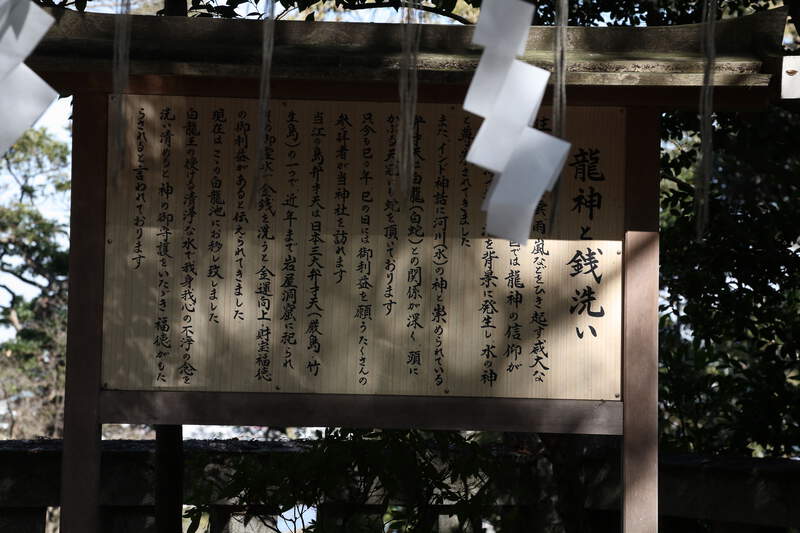 龍神と銭洗い
雲雨嵐などをひき起す威大な
では龍神の信仰が
を背景に発生し水の神
と尊ばれてきました
またインド神話に河川(水)の神と崇められている
弁才天は白龍(白蛇)との関係が深く頭に
只今も巳の年巳の日には御利益を願うたくさんの
参詣者が当神社を訪れます
当江の島弁才天は日本三大弁才天(厳島 竹
生島)の一つで近年まで岩屋洞窟に祀られ
水で金銭を洗うと金運向上財宝福徳
の御利益があると伝えられてきました
現在はこの白龍池にお移し致しました
白龍王の授ける清浄な水で我身我心の不浄の念を
洗い清めると神の御守護をいただき福徳がもた
らされると言われております